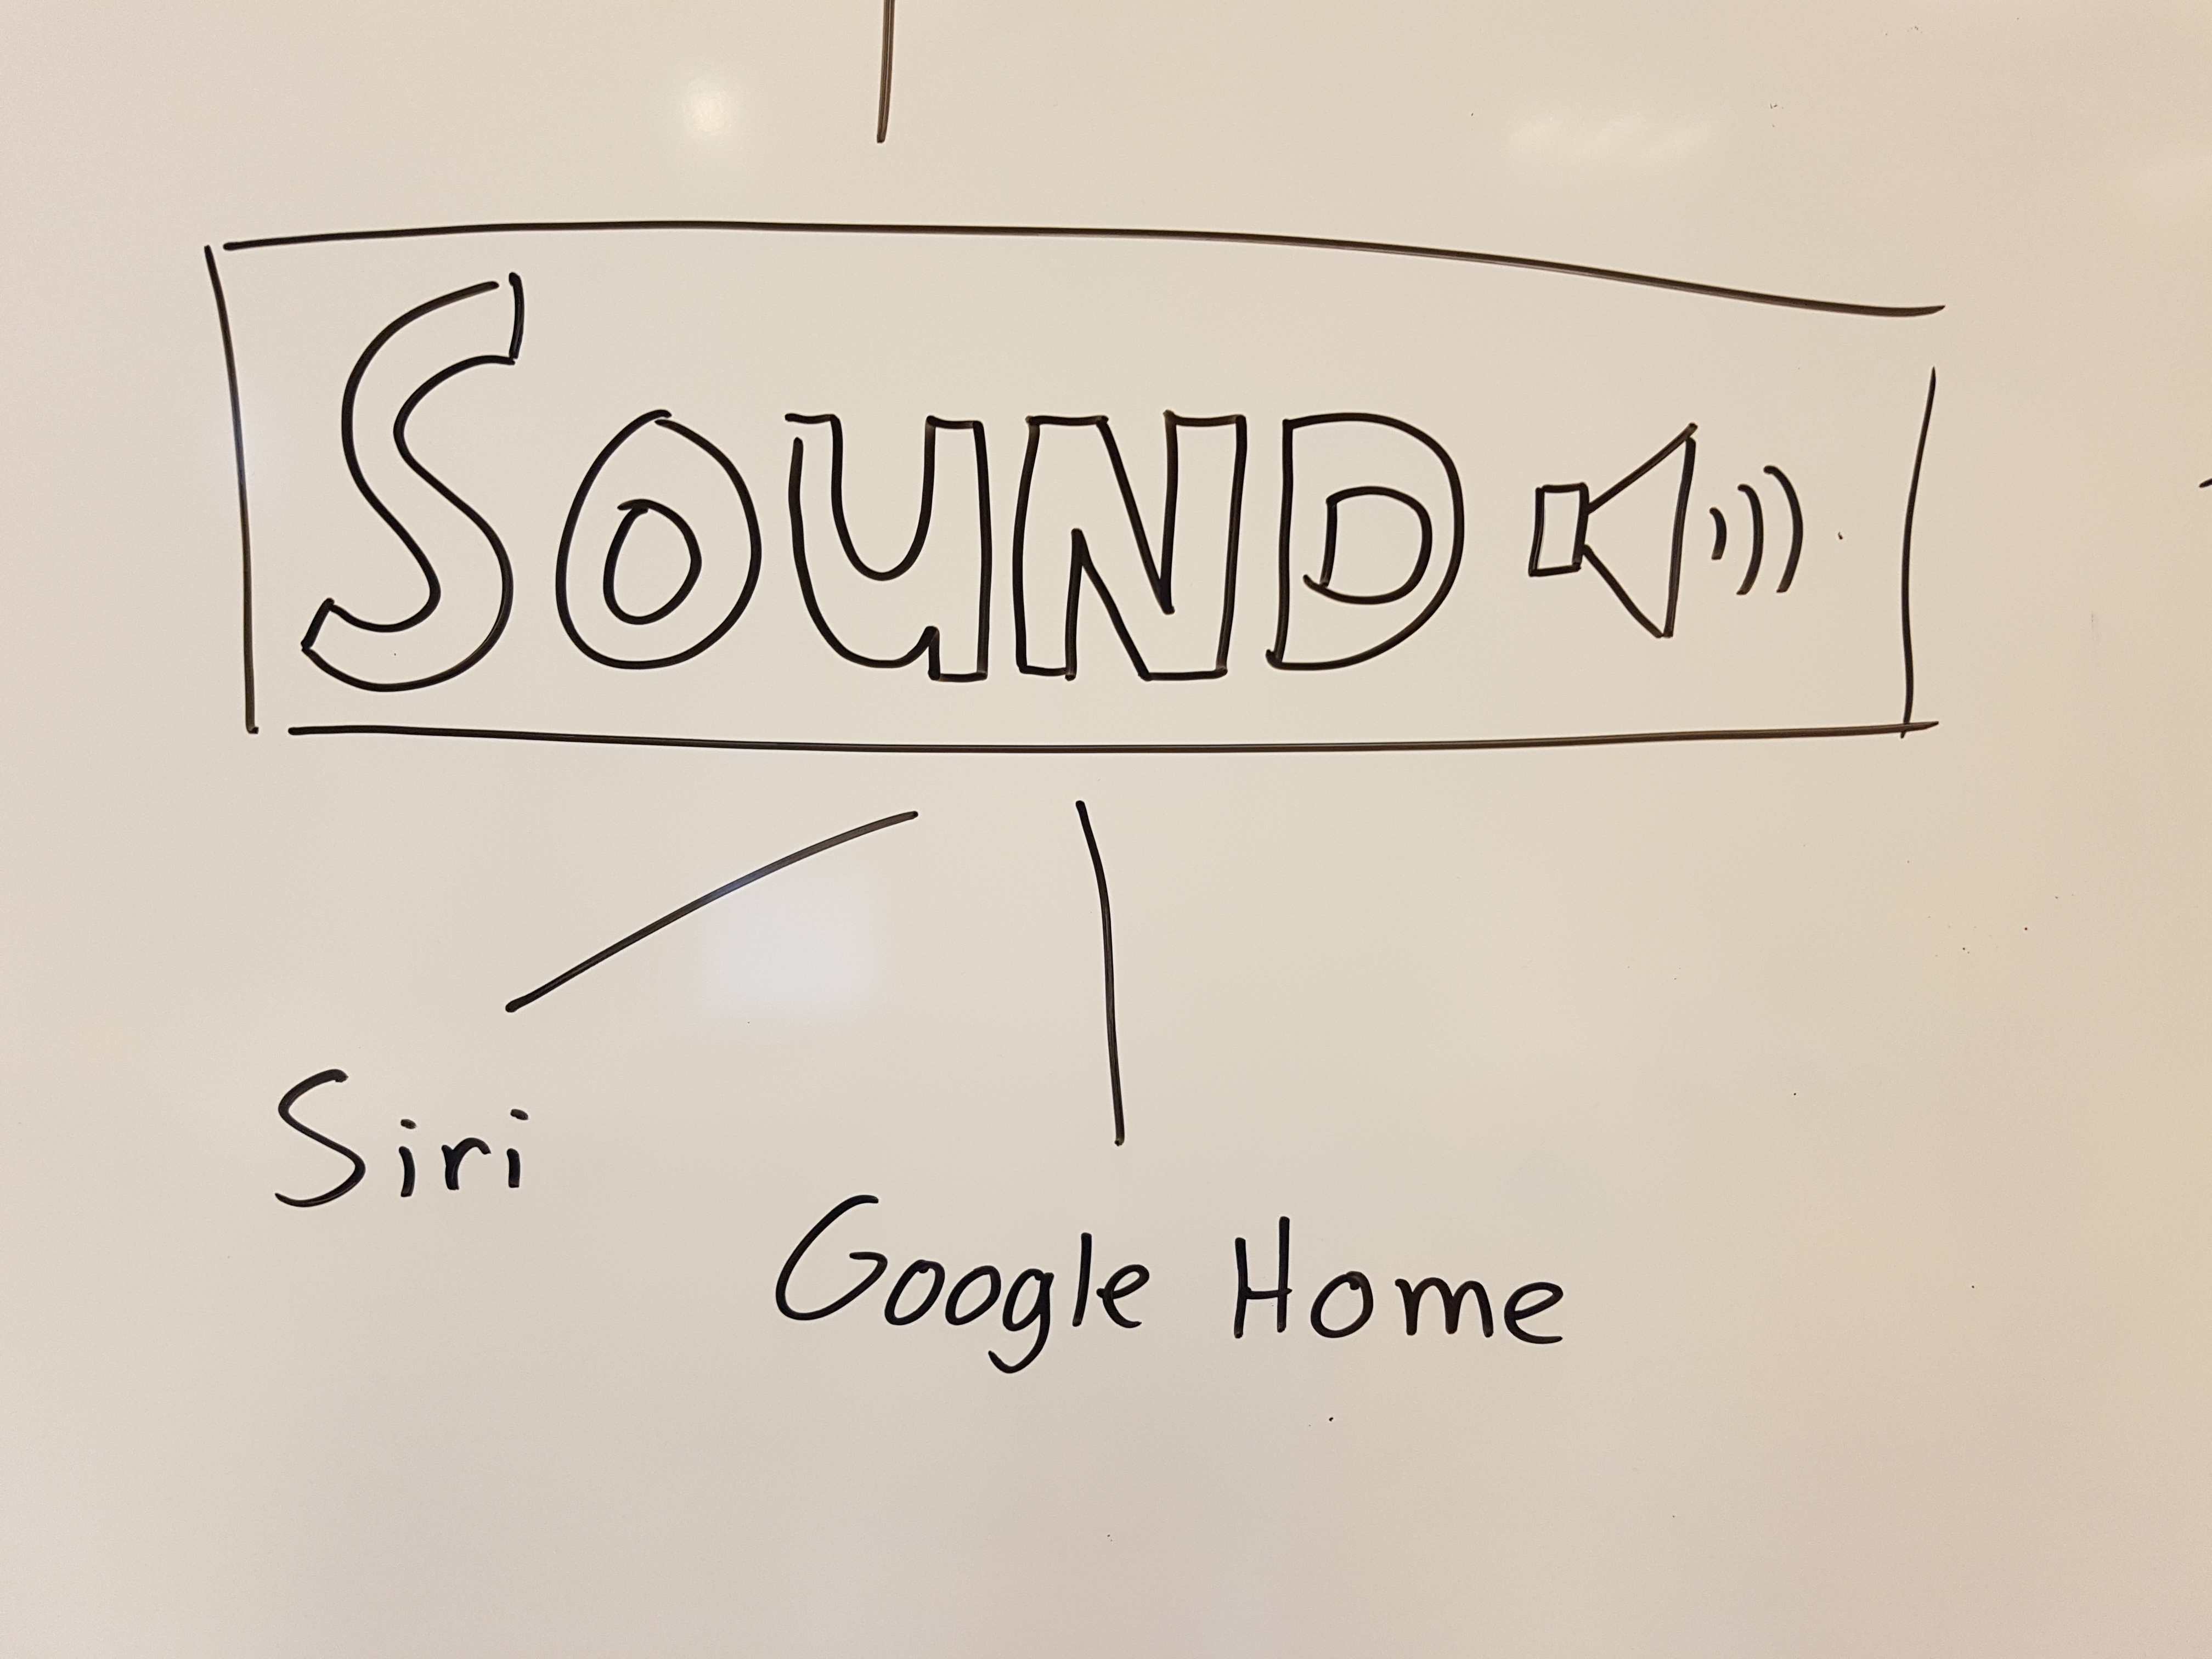 SOUND
Siri
Google Home